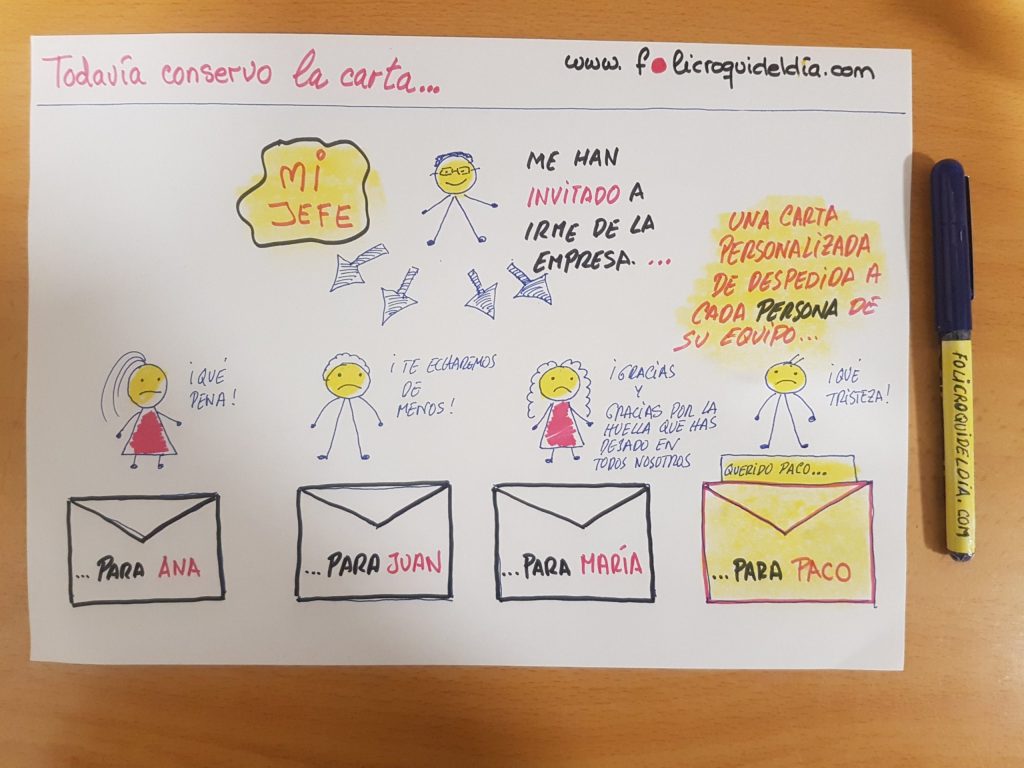 Todavía conservo la carta...
www.folicroquideldía.com
MI
JEFE
ME HAN
INVITADO A
IRME DE LA
EMPRESA. ...
UNA CARTA
PERSONALIZADA
DE DESPEDIDA A
CADA PERSONA DE
SU EQUIPO...
¡QUÉ
PENA!
¡TE ECHAREMOS
DE
MENOS!
¡GRACIAS
Y
GRACIAS POR LA
HUELLA QUE HAS
DEJADO EN
TODOS NOSOTROS
¡QUÉ
TRISTEZA!
QUERIDO PACO...
...PARA ANA
...PARA JUAN
...PARA MARÍA
...PARA PACO
FOLICROQUIDELDIA.COM